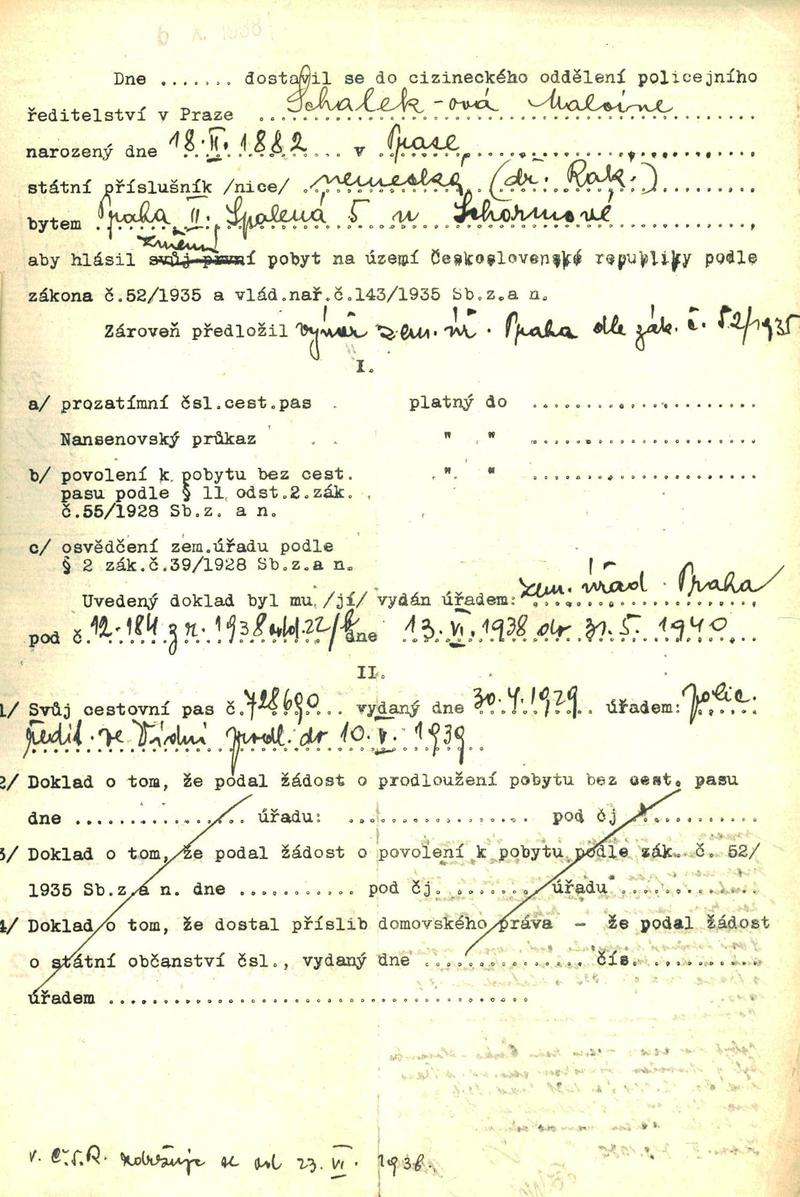 6 X. 1938
Dne ....... dostavil se do cizineckého oddělení policejního
ředitelství v Praze Schalek-ová Malvine
narozený dne 18.II.1882 v Praze,
státní příslušník /nice/ německá (dř. Rak.)
bytem Praha II. Spálená 5 u Schormové,
změnu
aby hlásil svůj první pobyt na území Československé republiky podle
zákona č.52/1935 a vlád.nař.č.143/1935 Sb.z.a n.
Zároveň předložil výměr zem. úř. Praha dle zák. č. 52/1935
I.
a/ prozatímní čsl.cest.pas . platný do ......................
Nansenovský průkaz . . " " ......................
b/ povolení k pobytu bez cest. " " ......................
pasu podle § 11 odst.2.zák.
č.55/1928 Sb.z. a n.
c/ osvědčení zem.úřadu podle
§ 2 zák.č.39/1928 Sb.z.a n.
Uvedený doklad byl mu /jí/ vydán úřadem: zem. úřad Praha
pod č. 12.184 z r. 1938 odd.22/ dne 13.VI.1938 do 31.5.1940
II.
1/ Svůj cestovní pas č. 728690 vydaný dne 30.4.1929 úřadem: polic.
ředit. ve Vídni prodl. do 10.V.1939
2/ Doklad o tom, že podal žádost o prodloužení pobytu bez cest. pasu
dne ................. úřadu: .................. pod čj ............
3/ Doklad o tom, že podal žádost o povolení k pobytu podle zák. č. 52/
1935 Sb.z.a n. dne ........... pod čj. ......... úřadu .............
4/ Doklad o tom, že dostal příslib domovského práva - že podal žádost
o státní občanství čsl., vydaný dne ............... čís. ..........
úřadem .......................................
v Č.S.R. zdržuje se od 23.VI.1938.